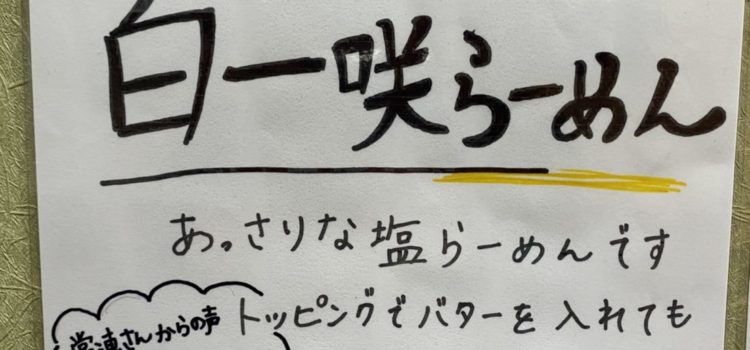 白一咲らーめん
あっさりな塩らーめんです
トッピングでバターを入れても
常連さんからの声